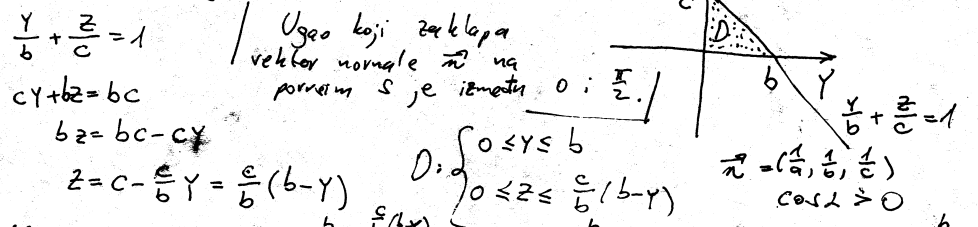 y/b + z/c = 1
cy+bz=bc
bz=bc-cy
z=c-c/b y = c/b (b-y)
/ Ugao koji zaklapa
vektor normale n⃗ na
površin S je između 0 i π/2. /
D: { 0 ≤ y ≤ b
0 ≤ z ≤ c/b (b-y)
c
D
b
y
y/b + z/c = 1
n⃗ = (1/a, 1/b, 1/c)
cos α > 0